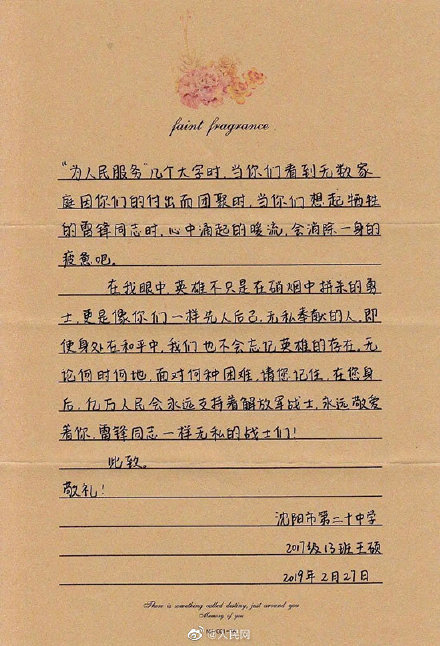 faint fragrance
“为人民服务”几个大字时,当你们看到无数家
庭因你们的付出而团聚时,当你们想起牺牲
的雷锋同志时,心中涌起的暖流,会消除一身的
疲惫吧。
在我眼中,英雄不只是在硝烟中拼杀的勇
士,更是像你们一样先人后己,无私奉献的人。即
使身处在和平中,我们也不会忘记英雄的存在。无
论何时何地,面对何种困难,请您记住,在您身
后,亿万人民会永远支持着解放军战士,永远敬爱
着你,雷锋同志一样无私的战士们!
此致。
敬礼!
沈阳市第二十中学
2017级13班王硕
2019年2月27日
There is something called destiny, just around you
Memory of you
@人民网